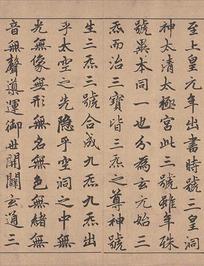 至上皇元年出書時號三皇洞
神太清太極宮此三號雖年殊
號異本同一也分為玄元始三
炁而治三寶皆三炁之尊神號
生三炁三號合成九炁九炁出
乎太空之先隱乎空洞之中無
光無像無形無名無色無緒無
音無聲導運御世開闢玄道三